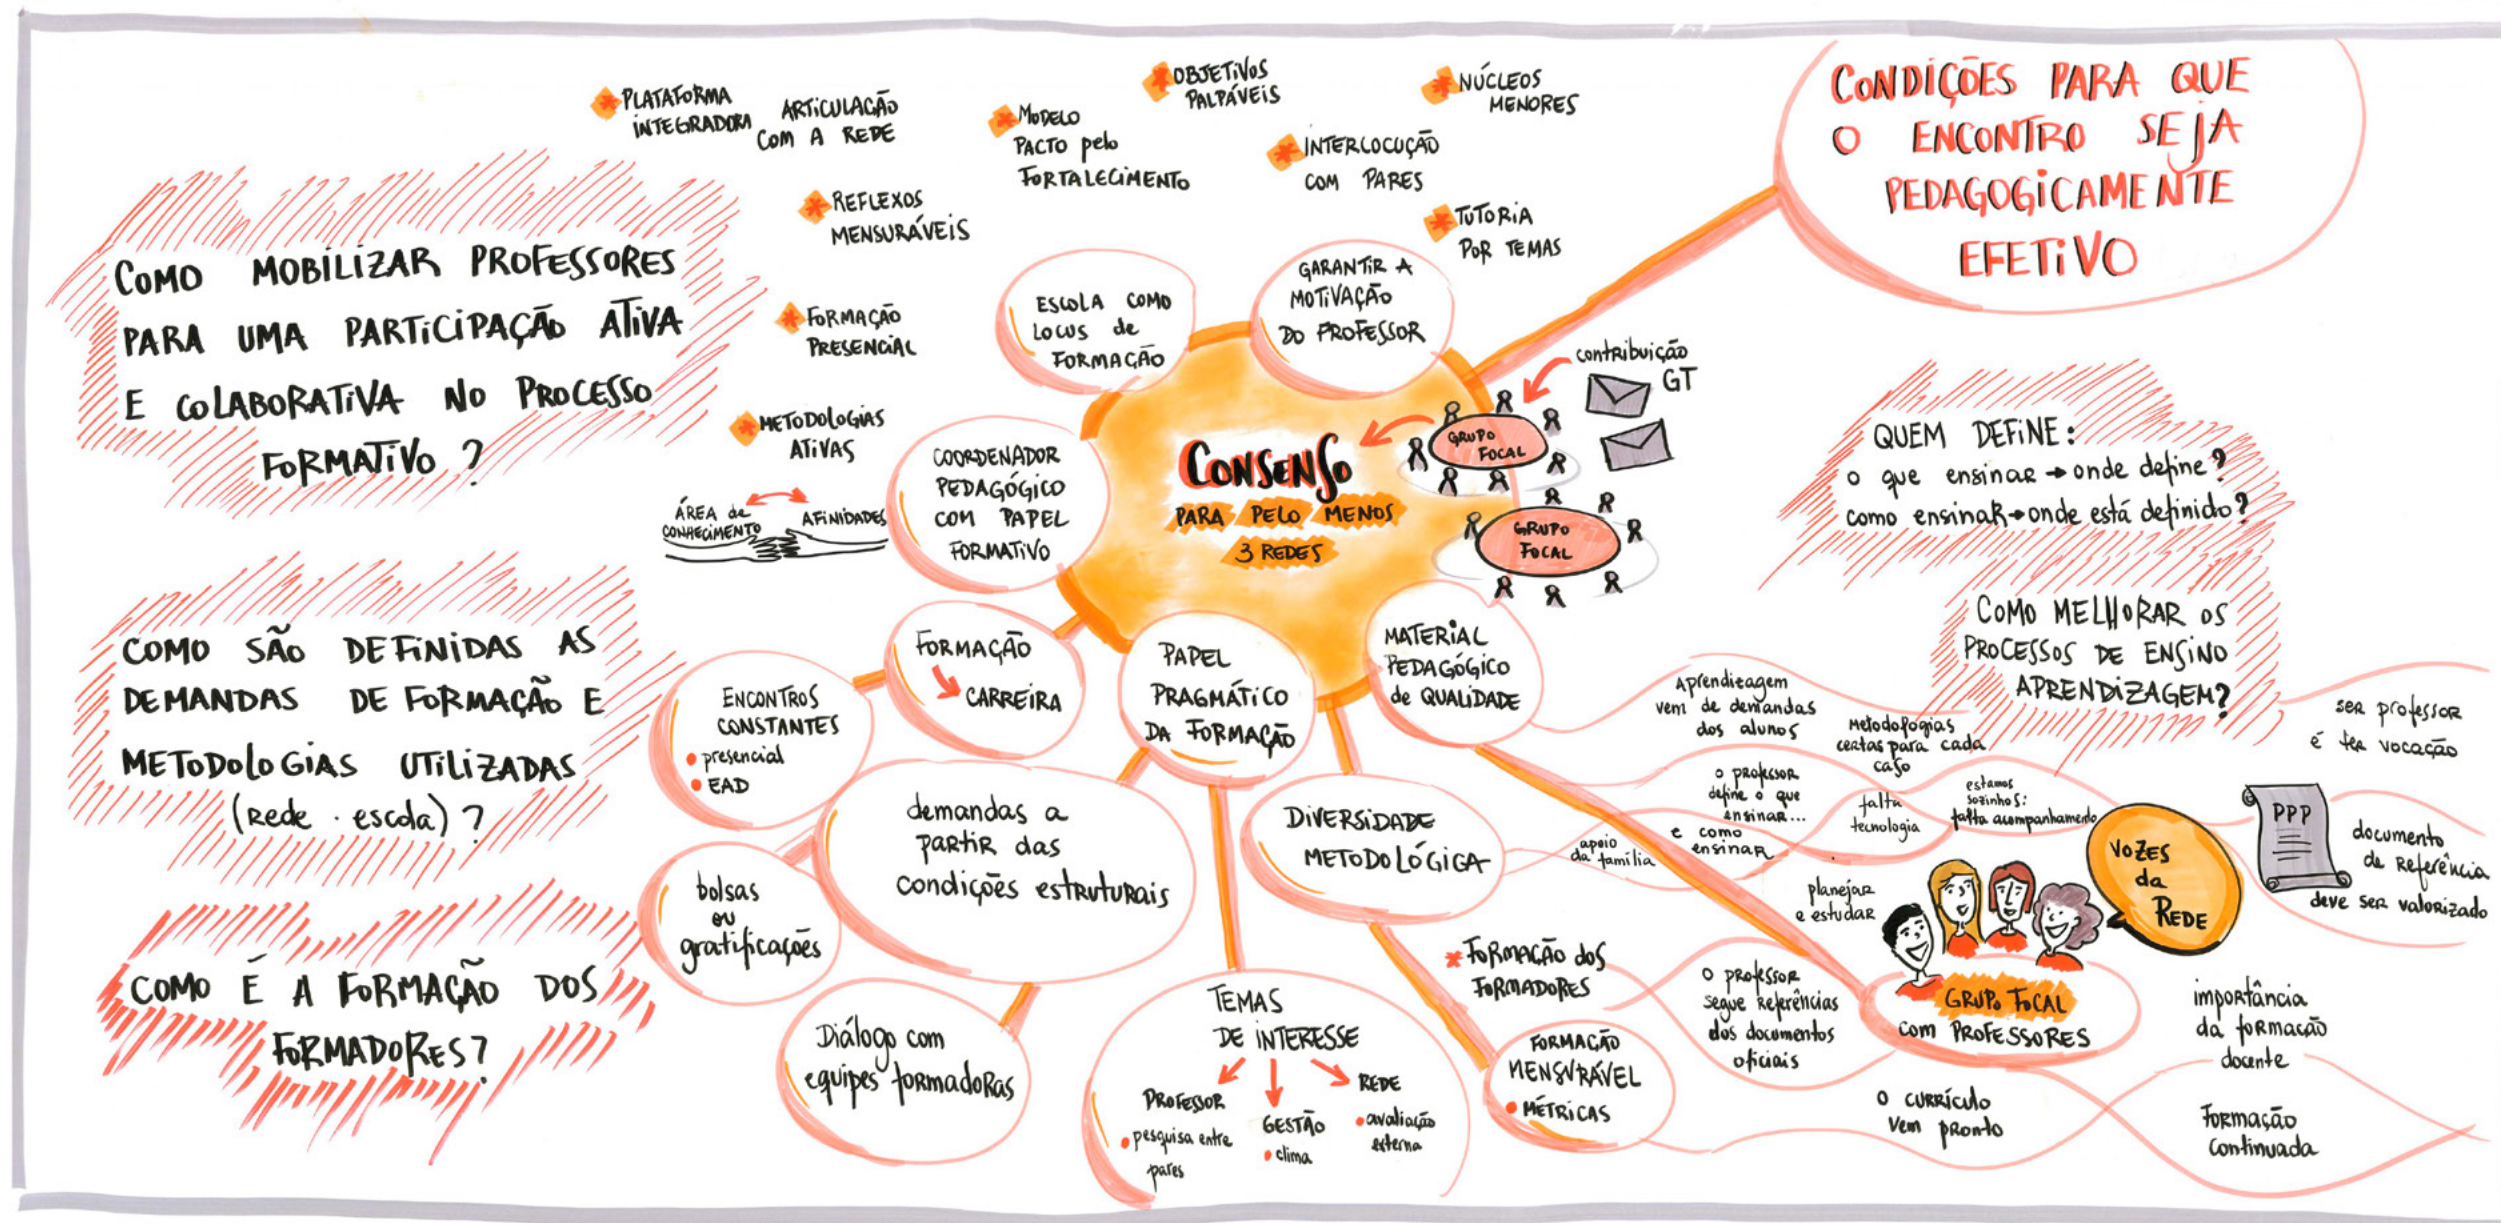 COMO MOBILIZAR PROFESSORES
PARA UMA PARTICIPAÇÃO ATIVA
E COLABORATIVA NO PROCESSO
FORMATIVO ?
COMO SÃO DEFINIDAS AS
DEMANDAS DE FORMAÇÃO E
METODOLOGIAS UTILIZADAS
(Rede · escola) ?
COMO É A FORMAÇÃO DOS
FORMADORES?
PLATAFORMA
INTEGRADORA
ARTICULAÇÃO
COM A REDE
REFLEXOS
MENSURÁVEIS
FORMAÇÃO
PRESENCIAL
METODOLOGIAS
ATIVAS
ÁREA de
CONHECIMENTO
AFINIDADES
MODELO
PACTO pelo
FORTALECIMENTO
OBJETIVOS
PALPÁVEIS
INTERLOCUÇÃO
COM PARES
NÚCLEOS
MENORES
TUTORIA
POR TEMAS
CONDIÇÕES PARA QUE
O ENCONTRO SEJA
PEDAGOGICAMENTE
EFETIVO
ESCOLA COMO
LOCUS de
FORMAÇÃO
GARANTIR A
MOTIVAÇÃO
DO PROFESSOR
COORDENADOR
PEDAGÓGICO
COM PAPEL
FORMATIVO
CONSENSO
PARA PELO MENOS
3 REDES
contribuição
GT
GRUPO
FOCAL
GRUPO
FOCAL
FORMAÇÃO
CARREIRA
PAPEL
PRAGMÁTICO
DA FORMAÇÃO
MATERIAL
PEDAGÓGICO
de QUALIDADE
ENCONTROS
CONSTANTES
presencial
EAD
demandas a
partir das
condições estruturais
bolsas
ou
gratificações
Diálogo com
equipes formadoras
DIVERSIDADE
METODOLÓGICA
TEMAS
DE INTERESSE
PROFESSOR
pesquisa entre
pares
GESTÃO
clima
REDE
avaliação
externa
FORMAÇÃO
MENSURÁVEL
MÉTRICAS
FORMAÇÃO dos
FORMADORES
QUEM DEFINE:
o que ensinar → onde define?
como ensinar → onde está definido?
COMO MELHORAR OS
PROCESSOS DE ENSINO
APRENDIZAGEM?
Aprendizagem
vem de demandas
dos alunos
Metodologias
certas para cada
caso
o professor
define o que
ensinar...
e como
ensinar
apoio
da família
falta
tecnologia
estamos
sozinhos:
falta acompanhamento
planejar
e estudar
VOZES
da
REDE
GRUPO FOCAL
com PROFESSORES
O professor
segue referências
dos documentos
oficiais
O currículo
vem pronto
ser professor
é ter vocação
PPP
documento
de Referência
deve ser valorizado
importância
da formação
docente
Formação
Continuada